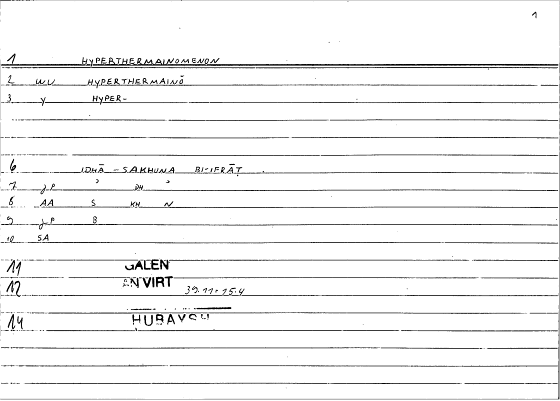 1
1 HYPERTHERMAINOMENON
2 WU HYPERTHERMAINŌ
3 y HYPER-
6 IDHĀ -SAKHUNA BI-IFRĀṬ
7 JP ʾ DH ʾ
8 AA S KH N
9 JP B
10 SA
11 GALEN
12 AN VIRT 39.11-15.4
14 HUBAYSH